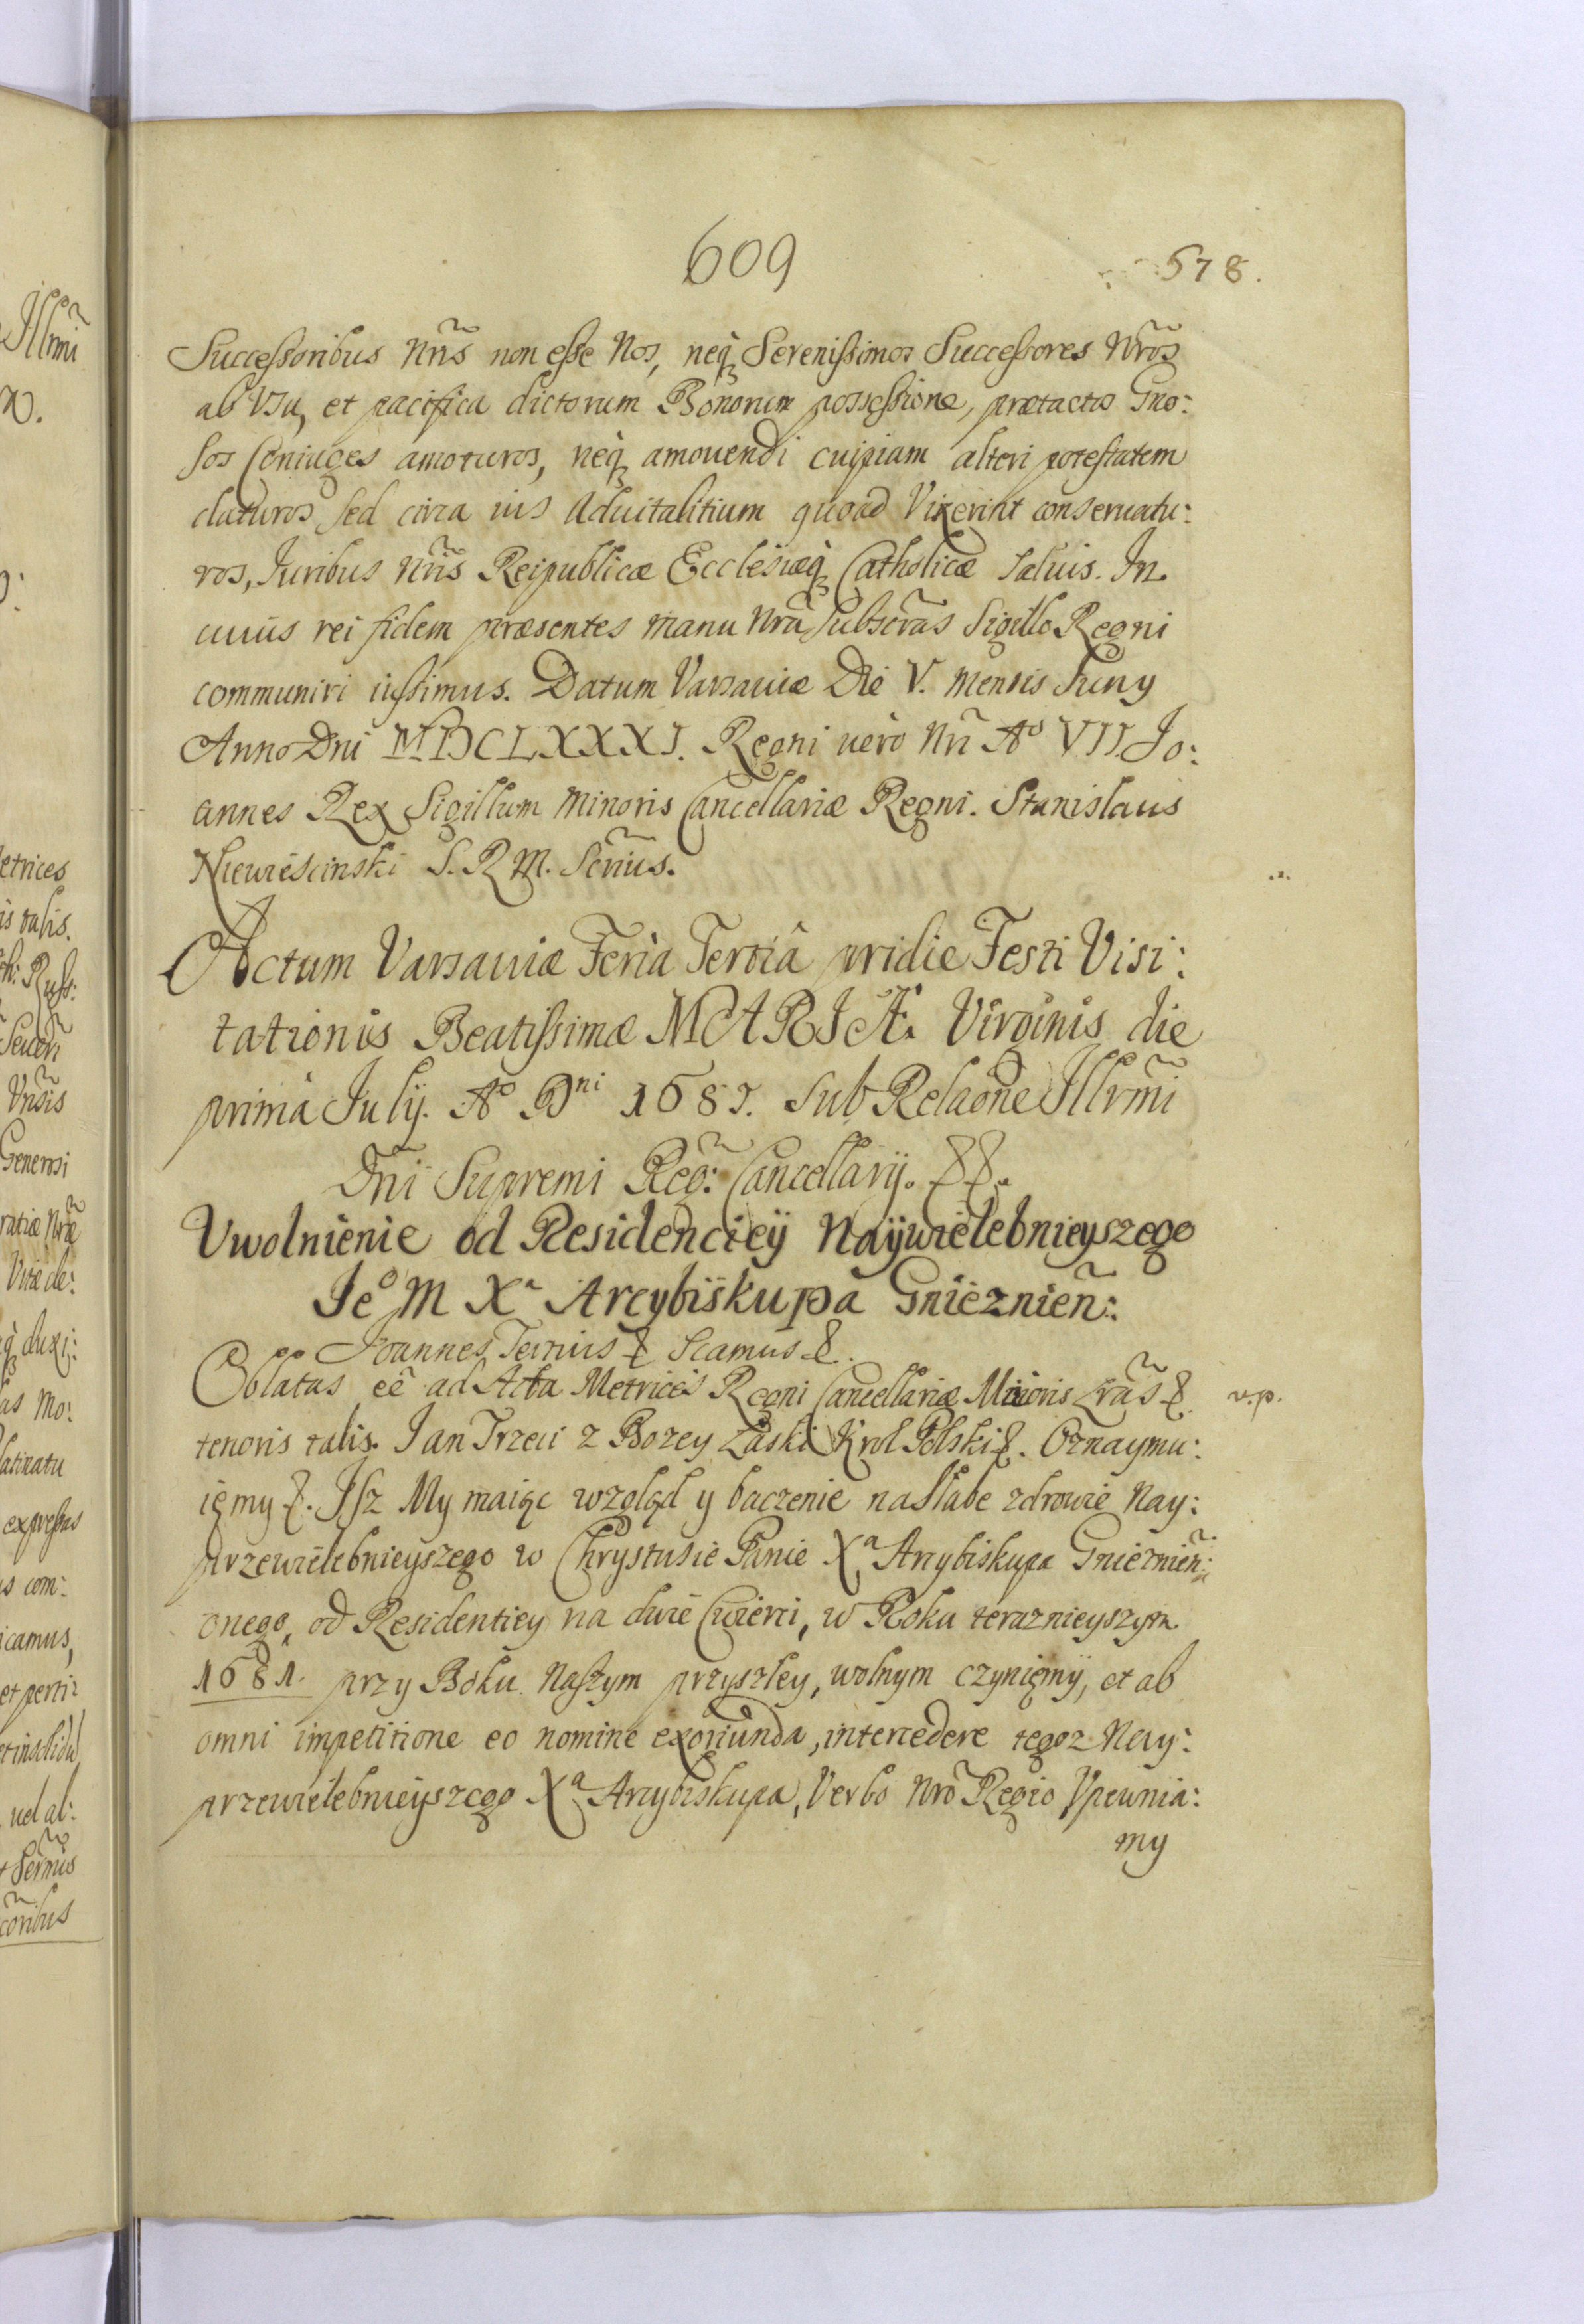 609
578.
Successoribus Nr̃is non esse Nos, neq̀ꝫ Serenissimos Successores Nr̃os
ab Vsu, et pacifica dictorum Bonorum possessione, prætactos Gno:
sos Coniuges amoturos, neq̀ꝫ amouendi cuipiam alteri potestatem
daturos sed circa ius Aduitalitium quoad Vixerint conseruatu:
ros, Iuribus Nr̃is Reipublicæ Ecclesiæq̀ꝫ Catholicæ Saluis. In
cuius rei fidem præsentes manu Nr̃a Subscr̃as Sigillo Regni
communiri iussimus. Datum Varsauiæ Die V. Mensis Iuny
Anno Dni MDCLXXXI. Regni uerò Nr̃i Aº VII. Jo:
annes Rex Sigillum Minoris Cancellariæ Regni. Stanislaus
Niewiescinski S. R M. Secr̃ius.
Actum Varsauiæ Feria Tertiâ pridie Festi Visi:
tationis Beatissimæ MARIÆ Virginis die
prima July. Aº Dni 1681. Sub Relaõne Illr̃mi
Dñi Supremi Reg: Cancellarij. &&.
Vwolnienie od Residencieÿ Naÿwielebnieyszego
Jeº M Xª Arcybiskupa Gnieznieñ:
Joannes Tertius & Scamus &.
Oblatas eẽ ad Acta Metrices Regni Cancellariæ Minoris Lr̃as &.
v. p.
tenoris talis. Jan Trzeci z Bozey Łaski Krol Polski &. Oznaymu:
ięmy &. Jsz My maiąc wzgląd y baczenie na słabe zdrowie Nay:
przewielebnieyszego w Chrystusie Panie Xª Arcybiskupa Gniezneñ:
onego, od Residentiey na dwie Cwierci, w Roku teraznieyszym
1681. przy Boku Naszym przyszłey, wolnym czynięmÿ, et ab
omni impetitione eo nomine exoriunda, intercedere tegoz Nay:
przewielebnieyszego Xª Arcybiskupa, Verbo Nr̃o Regio Vpewnia:
my